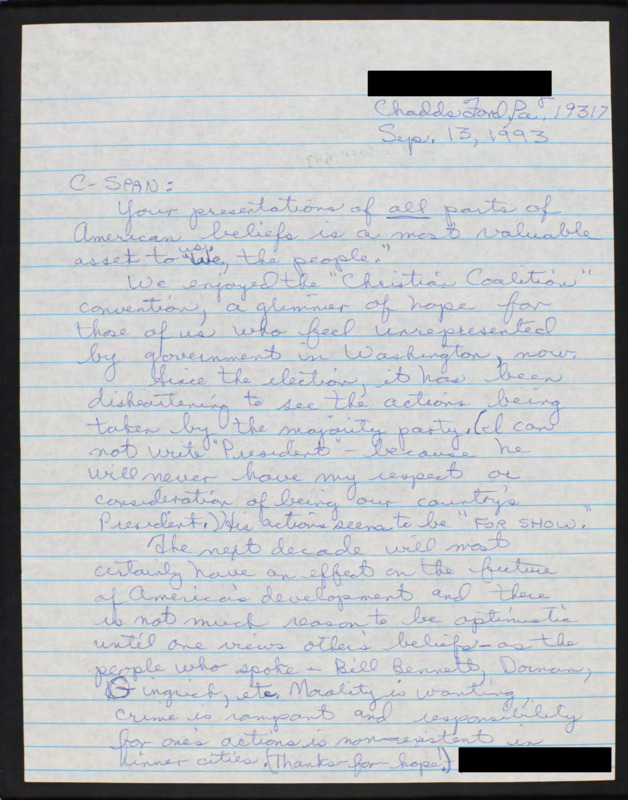 Chadds Ford, Pa, 19317
Sep. 13, 1993
C-SPAN:
Your presentations of all parts of
American beliefs is a most valuable
asset to us, "We, the people."
We enjoyed the "Christian Coalition"
convention, a glimmer of hope for
those of us who feel unrepresented
by government in Washington, now.
Since the election, it has been
disheartening to see the actions being
taken by the majority party. (I can
not write "President" - because he
will never have my respect or
consideration of being our country's
President.) His actions seem to be "FOR SHOW."
The next decade will most
certainly have an effect on the future
of America's development and there
is not much reason to be optimistic
until one views other's beliefs - as the
people who spoke - Bill Bennett, Dornan,
Gingrich, etc. Morality is wanting,
crime is rampant and responsibility
for one's actions is non-existent in
inner cities. (Thanks for hope.)